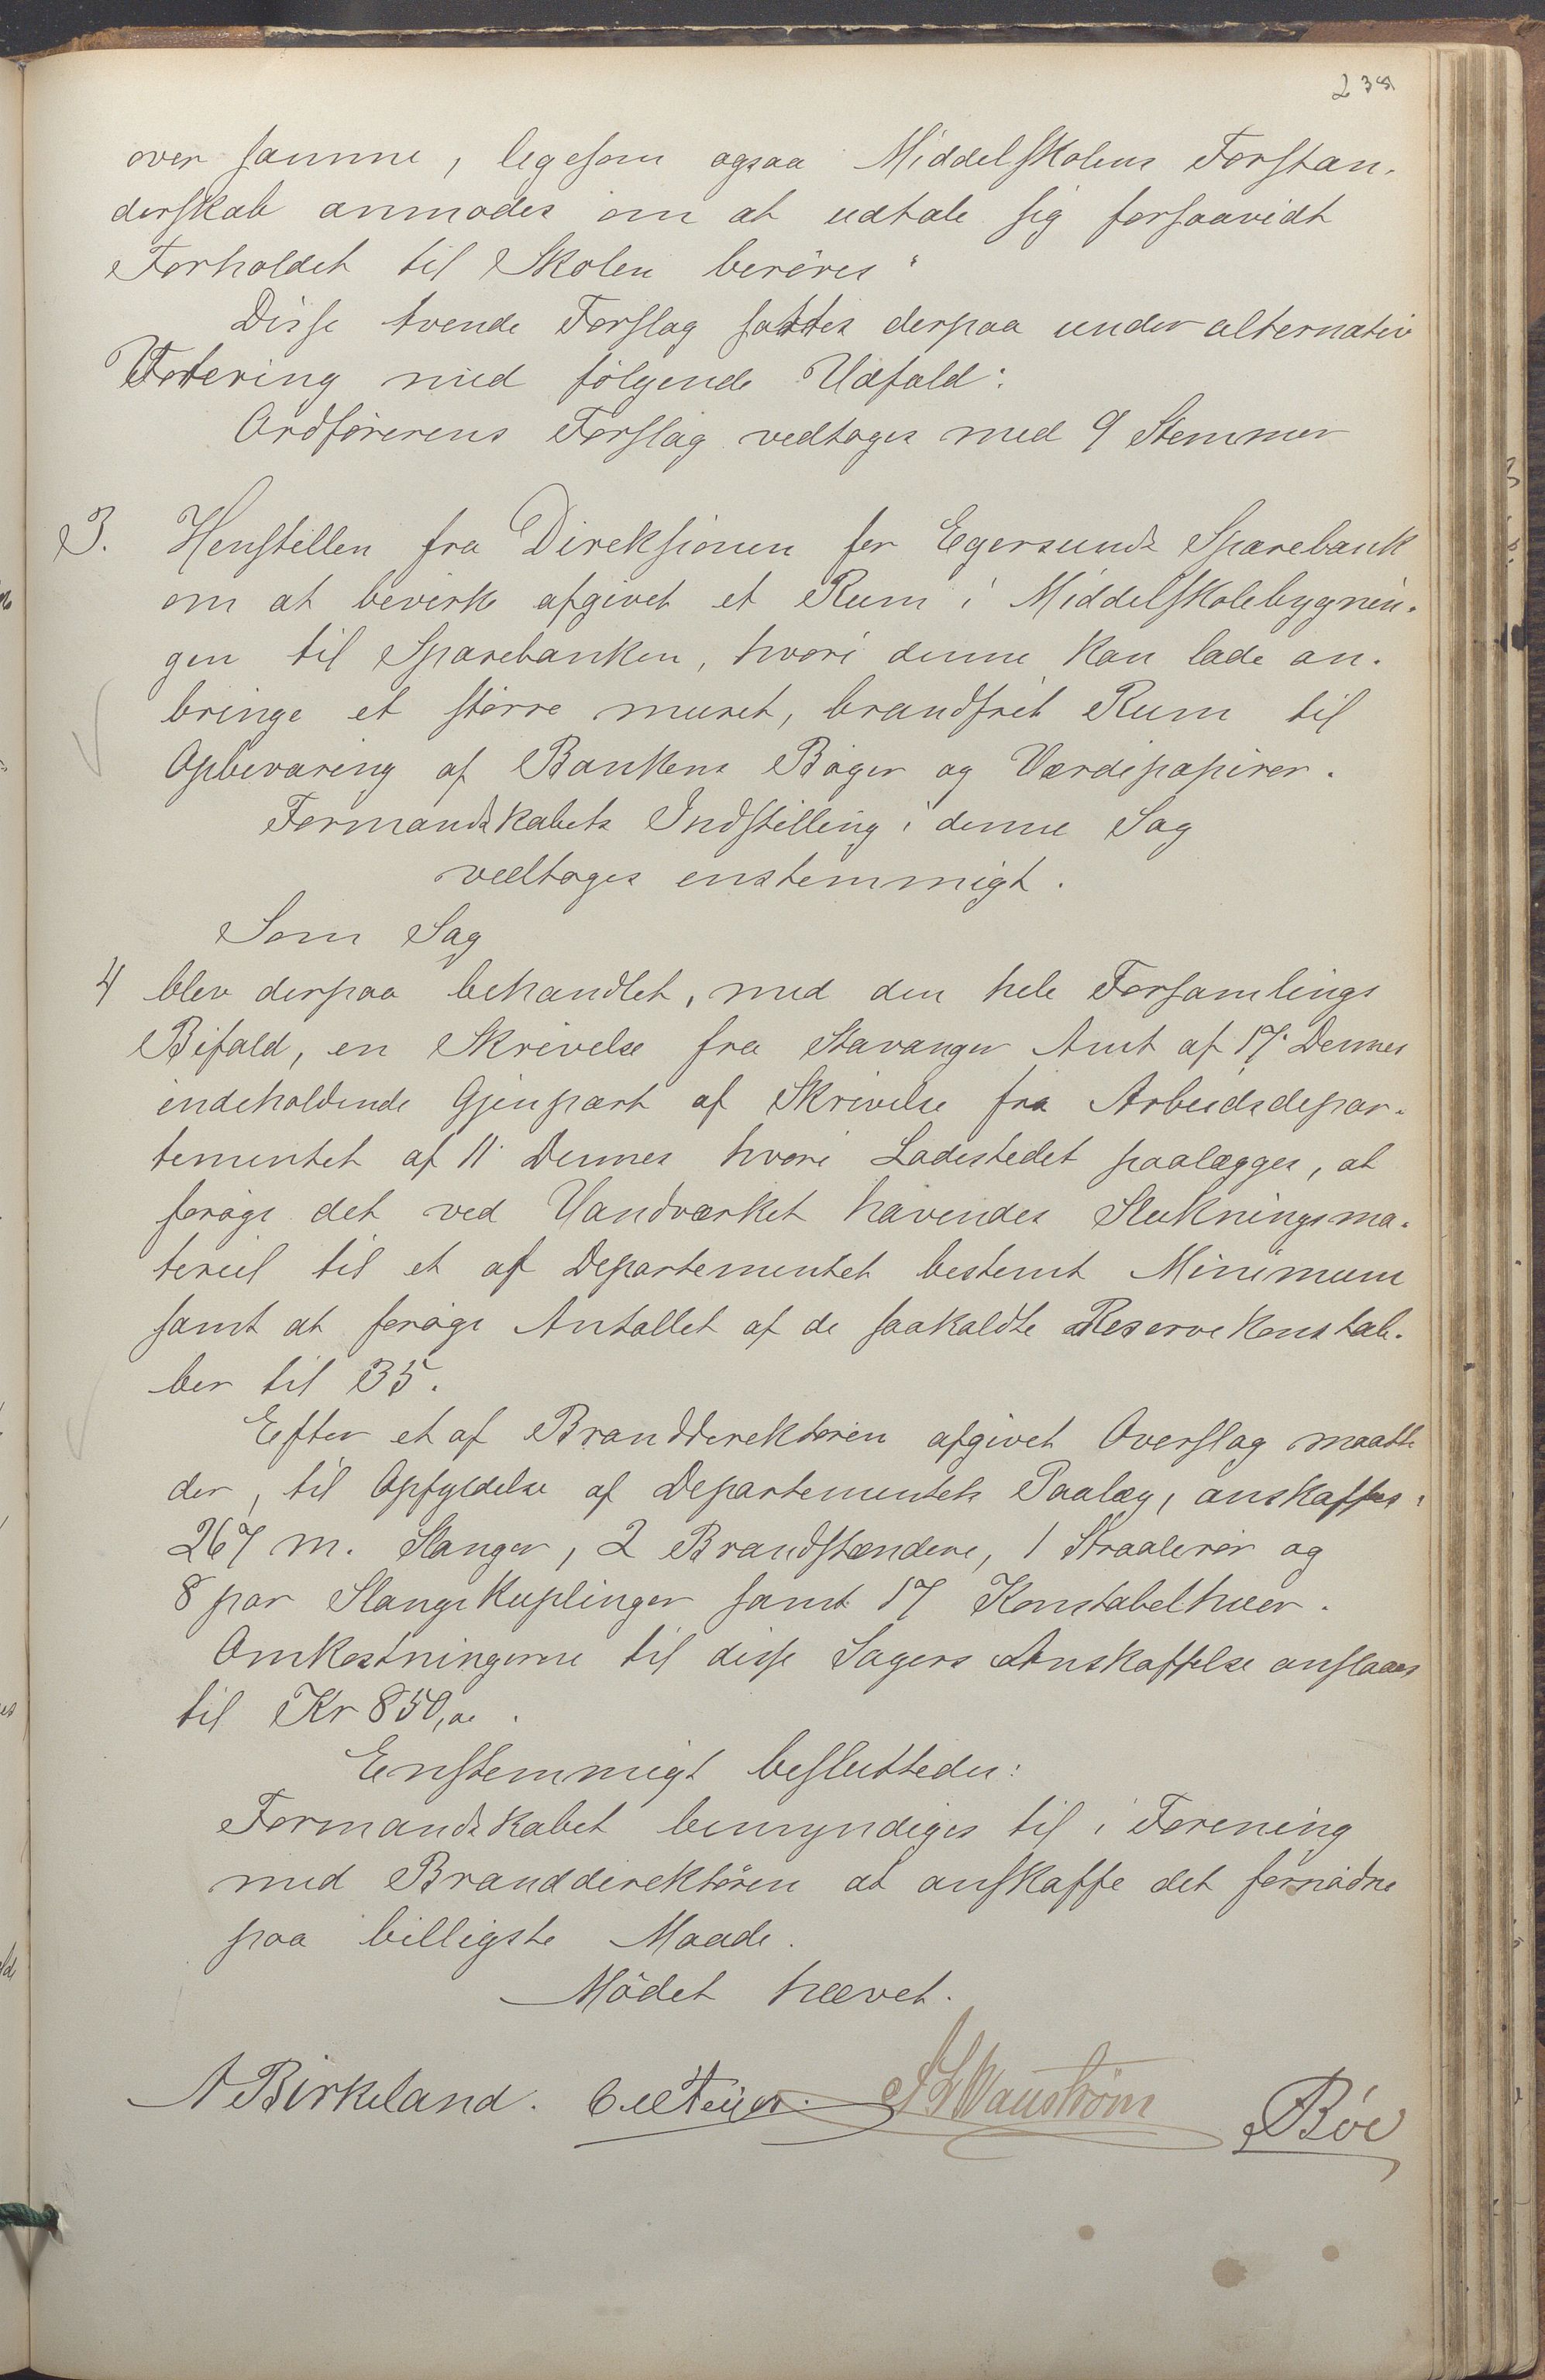 over samme, ligesom ogsaa Middelskolens Forstan-
derskab anmodes om at udtale sig forsaavidt
Forholdet til Skolen berøres"
Disse tvende Forslag sattes derpaa under alternativ
Votering med følgende Udfald:
Ordførerens Forslag vedtoges med 9 Stemmer
3. Henstillen fra Direksionen for Egersunds Sparebank
om at bevirke afgivet et Rum i Middelskolebygnin-
gen til Sparebanken, hvori denne kan lade an-
bringe et større muret, brandfrit Rum til
Opbevaring af Bankens Bøger og Værdipapirer.
Formandskabets Indstilling i denne Sag
vedtoges enstemmigt.
Som Sag
4 blev derpaa behandlet, med den hele Forsamlings
Bifald, en Skrivelse fra Stavanger Amt af 17. Dennes
indeholdende Gjenpart af Skrivelse fra Arbeidsdepar-
tementet af 11. Dennes hvori Ladestedet paalægges, at
forøge det ved Vandværket havendes Slukningsma-
teriel til et af Departementet bestemt Minimum
samt at forøge Antallet af de saakaldte Reservekonstab-
ber til 35.
Efter et af Branddirektøren afgivet Overslag maatte
der, til Opfyldelse af Departementets Paalæg, anskaffes:
267 m. Slanger, 2 Brandstændere, 1 Straalerør og
8 par Slangekuplinger samt 17 Konstabelhuer.
Omkostningerne til disse Sagers Anskaffelse anslaaes
til Kr 850,00.
Enstemmigt besluttedes:
Formandskabet bemyndiges til i Forening
med Branddirektøren at anskaffe det fornødne
paa billigste Maade.
Mødet hævet.
A Birkeland. Feyer. Wanström Böe